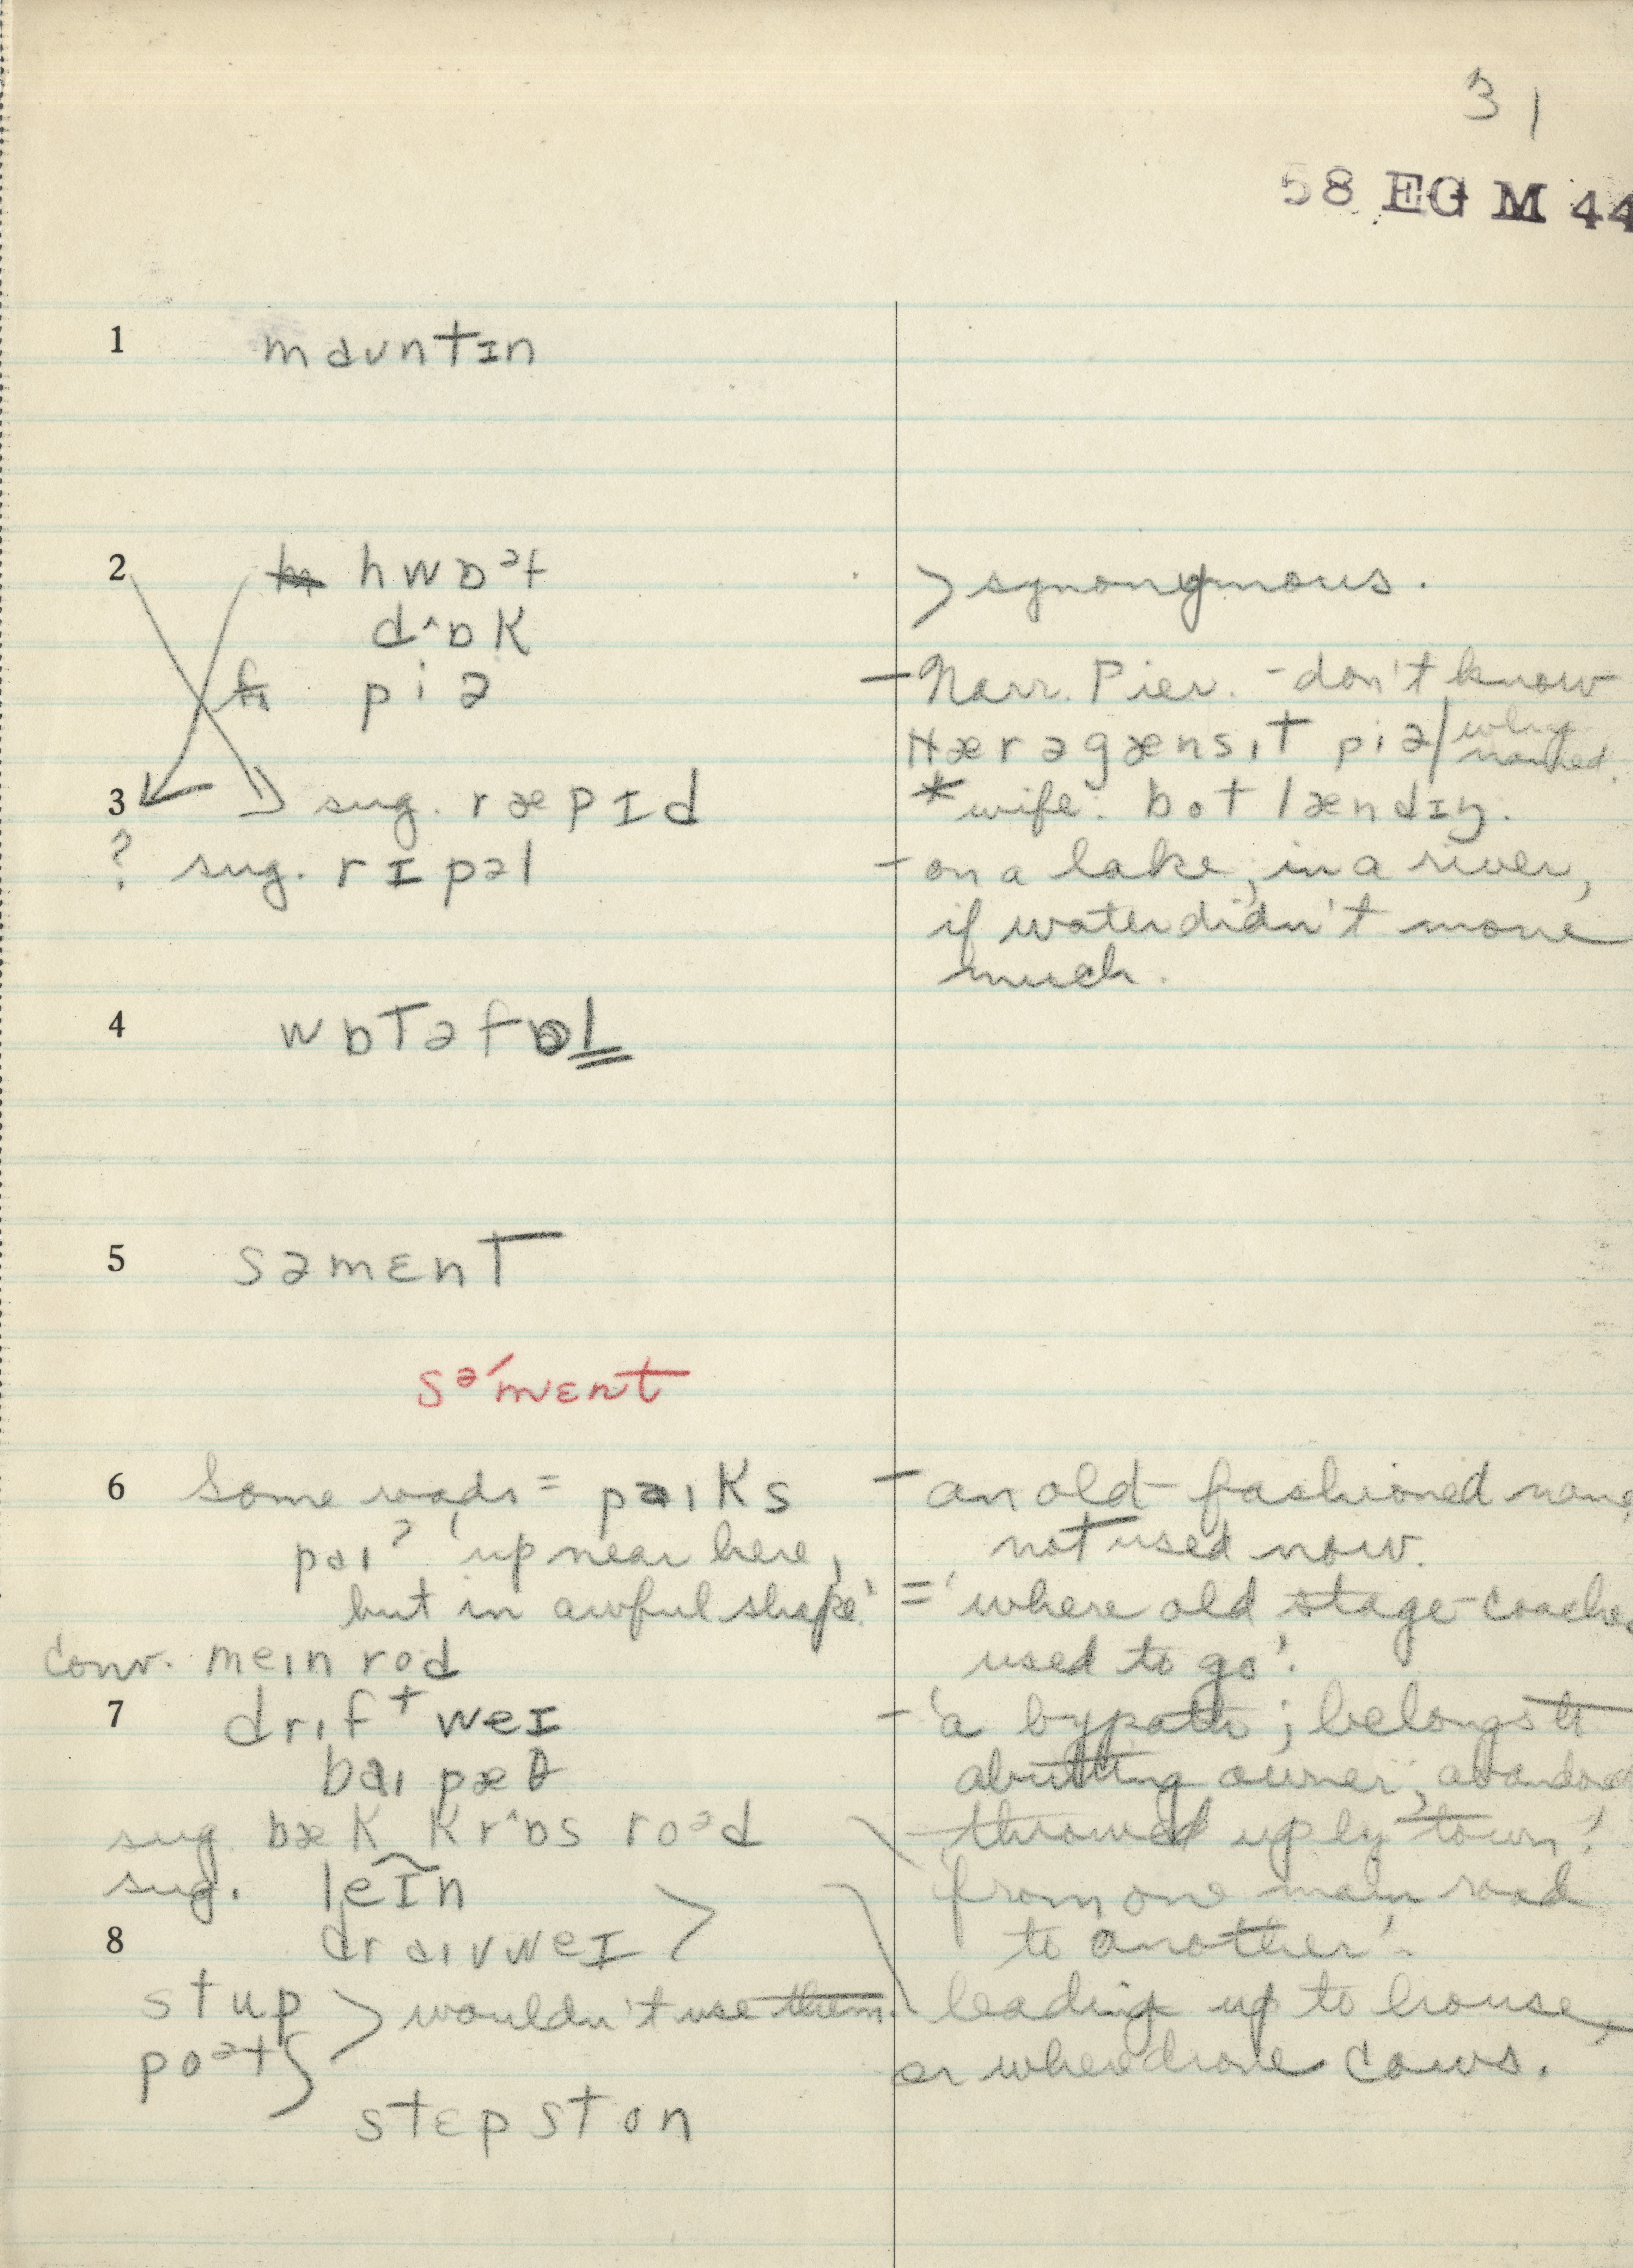 31
58 EG M 44
1 mɑʊntɪn
2 hwɒᵊf > synonymous.
dˆɒk
piə – Narr. Pier. – don't know
nærəgænsɪt piə / why named.
3 sug. ræpɪd * wife: bot lændɪŋ.
? sug. rɪpəl – on a lake, in a river,
if water didn't move
much.
4 wɒtəfɒl
5 səmɛnT
sə́mɛnt
6 Some roads = paɪks – an old-fashioned name,
paɪ? 'up near here, not used now.
but in awful shape.' = 'where old stage-coaches
conv. meɪn rod used to go'.
7 drɪftweɪ – 'a bypath; belongs t
baɪ pæθ abutting owner; abandoned
sug bæk krˆɒs roᵊd throwed up by town'.
sug. leɪ̃n 'from one main road
8 draɪvweɪ > to another'.
stup > wouldn't use them. leading up to house,
poᵊtʃ or where drove cows.
stɛpston